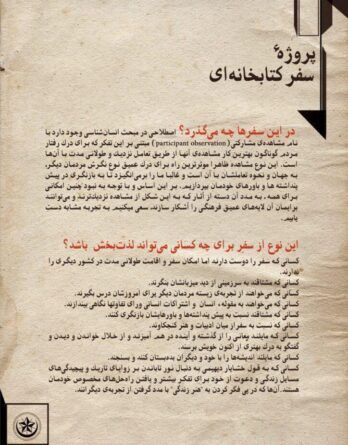 پروژهٔ
سفر کتابخانه‌ای
در این سفرها چه می‌گذرد؟ اصطلاحی در مبحث انسان‌شناسی وجود دارد با
نام مشاهده‌ی مشارکتی (participant observation) مبتنی بر این تفکر که برای درک رفتار
مردم گوناگون بهترین کار مشاهده‌ی آنها از طریق تعامل نزدیک و طولانی مدت با آن‌ها
است. این نوع مشاهده ظاهرا موثرترین راه برای درک عمیق نوع نگرش مردمان دیگر،
به جهان و نحوه تعاملشان با آن است و غالبا ما را برمی‌انگیزد تا به بازنگری در پیش
پنداشته ها و باورهای خودمان بپردازیم. بر این اساس و با توجه به نبود چنین امکانی
برای همه، به مدد آن دسته از آثار که به این شکل از مشاهده نزدیک‌ترند و می‌توانند
برایمان لایه‌های عمیق فرهنگی را آشکار سازند، سعی میکنیم به تجربه مشابه دست
یابیم.
این نوع از سفر برای چه کسانی می‌تواند لذت‌بخش باشد؟
کسانی که سفر را دوست دارند اما امکان سفر و اقامت طولانی مدت در کشور دیگری را
ندارند.
کسانی که مشتاقند به سرزمینی از دید میزبانش بنگرند.
کسانی که می‌خواهند از تجربه‌ی زیسته مردمان دیگر برای امروزشان درس بگیرند.
کسانی که می‌خواهند به مقوله‌ء انسان و اشتراکات انسانی ورای تفاوتها نگاهی بیندازند.
کسانی که مشتاقند نسبت به پیش پنداشته‌ها و باورهایشان بازنگری کنند.
کسانی که نسبت به سفر از میان ادبیات و هنر کنجکاوند.
کسانی که مایلند معانی را از گذشته و آینده در هم آمیزند و از خلال خواندن و دیدن و
گفتگو به درک بهتری از اکنون خویش برسند.
کسانی که مایلند اندیشه‌ها را با خود و دیگران بده‌بستان کنند و بسنجند.
کسانی که به قول خشایار دیهیمی به دنبال نور تاباندن بر زوایای تاریک و پیچیدگی‌های
مسایل زندگی و دعوت از خود برای تفکر بیشتر و یافتن راه‌حل‌های مخصوص خودمان
هستند. آن‌ها که در پی فکر کردن به "هنر زندگی" با مدد گرفتن از تجربه‌ی دیگرانند.